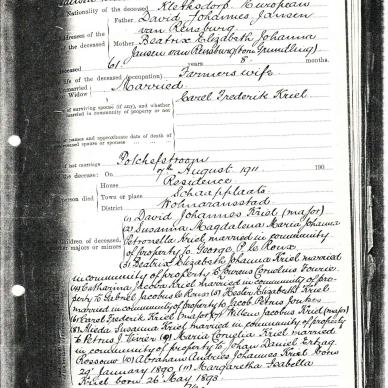 Nationality of the deceased Klerksdorp European
Father David Johannes Jansen
van Rensburg
Addresses of the
the deceased
Mother Beatrix Elizabeth Johanna
Jansen van Rensburg (born
61 years 8 months.
life of the deceased (occupation) Farmers wife
unmarried
Widow
Married
of surviving spouse (if any), and whether
married in community of property or not
Carel Frederik Kriel
names and approximate date of death of
deceased spouse or spouses
of last marriage Potchefstroom
the decease: On 7th August 1911 190
House Residence
person died Town or place Schaapplaats
District Wolmaransstad
(1) David Johannes Kriel (major)
(2) Susanna Magdalena Maria Johanna
Children of deceased,
or majors or minors
Petronella Kriel married in community
of property to George P. le Roux.
(3) Beatrix Elizabeth Johanna Kriel married
in community of property to Cornelius Fourie.
(4) Catharina Jacoba Kriel married in community of pro-
perty to Gabriel Jacobus le Roux (5) Hester Elizabeth Kriel
married in community of property to Jacob Petrus Jonker
(6) Carel Frederik Kriel (major) (7) Willem Jacobus Kriel (major)
(8) Susanna Kriel married in community of property
to Petrus J. Vivier (9) Maria Cornelia Kriel married
in community of property to Daniel
Rossouw (10) Abraham Andries Johannes Kriel born
29 January 1890 (11) Margaretha Isabella
Kriel born 26 May 1898